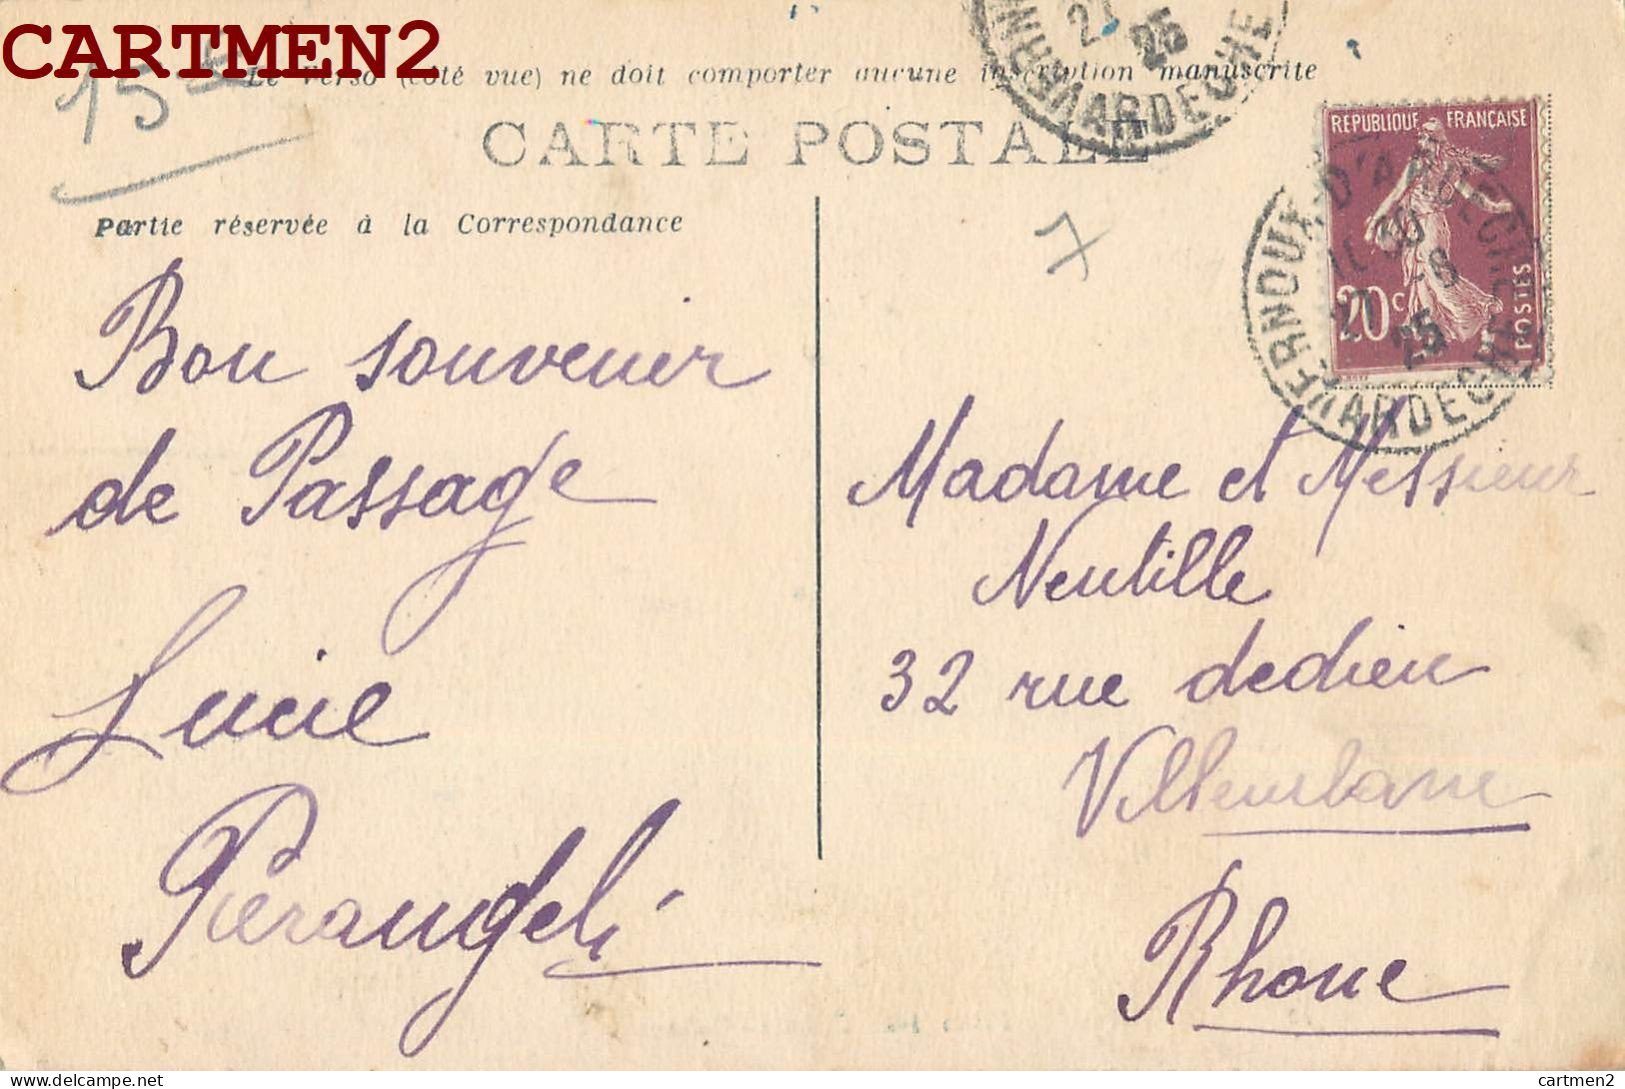 CARTMEN2
15
Le Verso (côté vue) ne doit comporter aucune inscription manuscrite
CARTE POSTALE
Partie réservée à la Correspondance
7
25
ARDECHE
REPUBLIQUE FRANÇAISE
20c
POSTES
VERNOUX-D'ARDECHE
11 30
21 -8
25
ARDECHE
Bon souvenir
de Passage
Lucie
Pierangeli
Madame et Messieur
Neutille
32 rue dedieu
Villeurbanne
Rhone
Delcampe.net
cartmen2